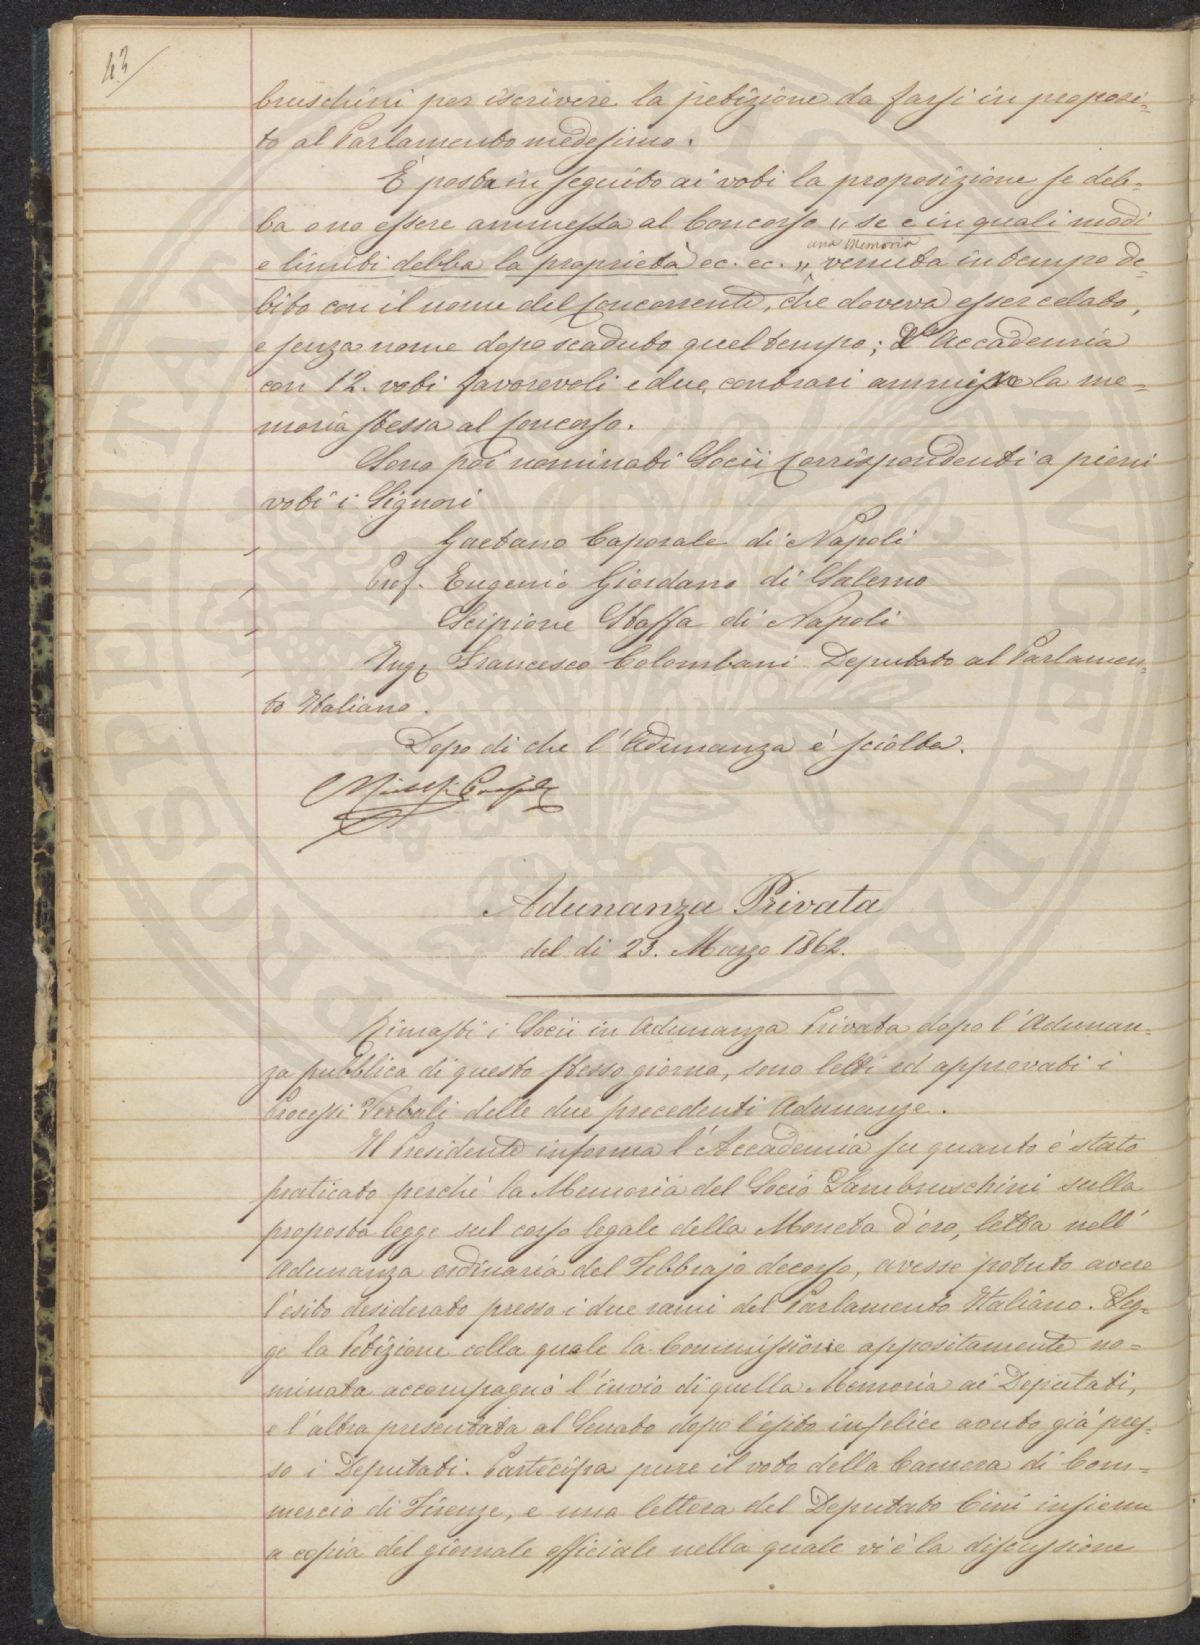 43
bruschini per iscrivere la petizione da farsi in proposi=
to al Parlamento medesimo.
È posta in seguito ai voti la proposizione se deb=
ba o no essere ammessa al Concorso „ se e in quali modi
e limiti debba la proprietà ec. ec. „ una Memoria venuta in tempo de=
bito con il nome del Concorrente, che doveva esser celato,
e senza nome dopo scaduto quel tempo; L'Accademia
con 12. voti favorevoli e due contrari ammise la me=
moria stessa al Concorso.
Sono poi nominati Socii Corrispondenti a pieni
voti i Signori
Gaetano Caporale di Napoli
Prof. Eugenio Giordano di Salerno
Scipione Staffa di Napoli
Ing. Francesco Colombani Deputato al Parlamen=
to Italiano.
Dopo di che l'Adunanza è sciolta.
Adunanza Privata
del dì 23. Marzo 1862.
Rimasti i Socii in Adunanza Privata dopo l'Adunan=
za pubblica di questo stesso giorno, sono letti ed approvati i
Processi Verbali delle due precedenti Adunanze.
Il Presidente informa l'Accademia su quanto è stato
praticato perché la Memoria del Socio Lambruschini sulla
proposta legge sul corso legale della Moneta d'oro, letta nell'
Adunanza ordinaria del Febbrajo decorso, avesse potuto avere
l'esito desiderato presso i due rami del Parlamento Italiano. Leg=
ge la Petizione colla quale la Commissione appositamente no=
minata accompagnò l'invio di quella Memoria ai Deputati,
e l'altra presentata al Senato dopo l'esito infelice avuto già pres=
so i Deputati. Partecipa pure il voto della Camera di Com=
mercio di Firenze, e una lettera del Deputato Cini insieme
a copia del giornale officiale nella quale vi è la discussione
PROSPERITATI PUBLICAE AUGENDAE